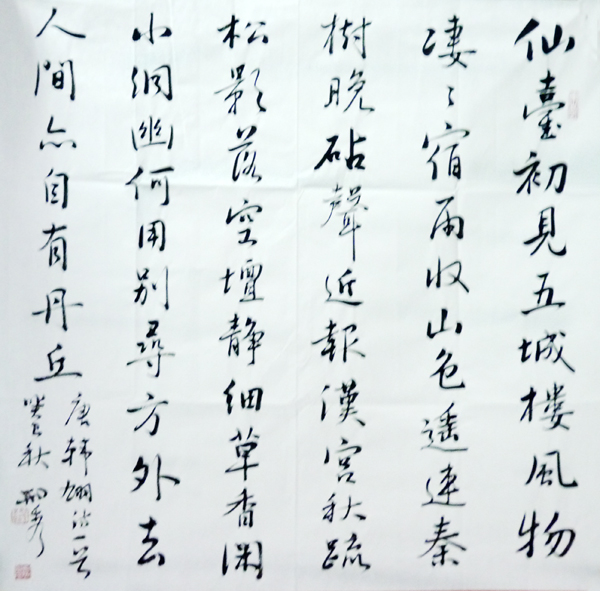 仙臺初見五城樓風物
凄〻宿雨收山色遥連秦
樹晚砧聲近報漢宮秋疏
松影落空壇静細草香閑
小洞幽何用别尋方外去
人間亦自有丹丘
唐韩翃诗一首
癸巳秋